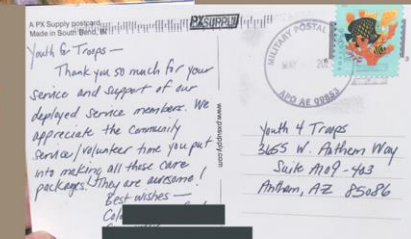 A PX Supply postcard
Made in South Bend, IN
PXSUPPLY
Youth for Troops —
Thank you so much for your
service and support of our
deployed service members. We
appreciate the Community
service/volunteer time you put
into making all those care
packages! They are awesome!
Best wishes —
www.pxsupply.com
MILITARY POSTAL
MAY
APO AE
Youth 4 Troops
3655 W. Anthem Way
Suite A109-403
Anthem, AZ 85086